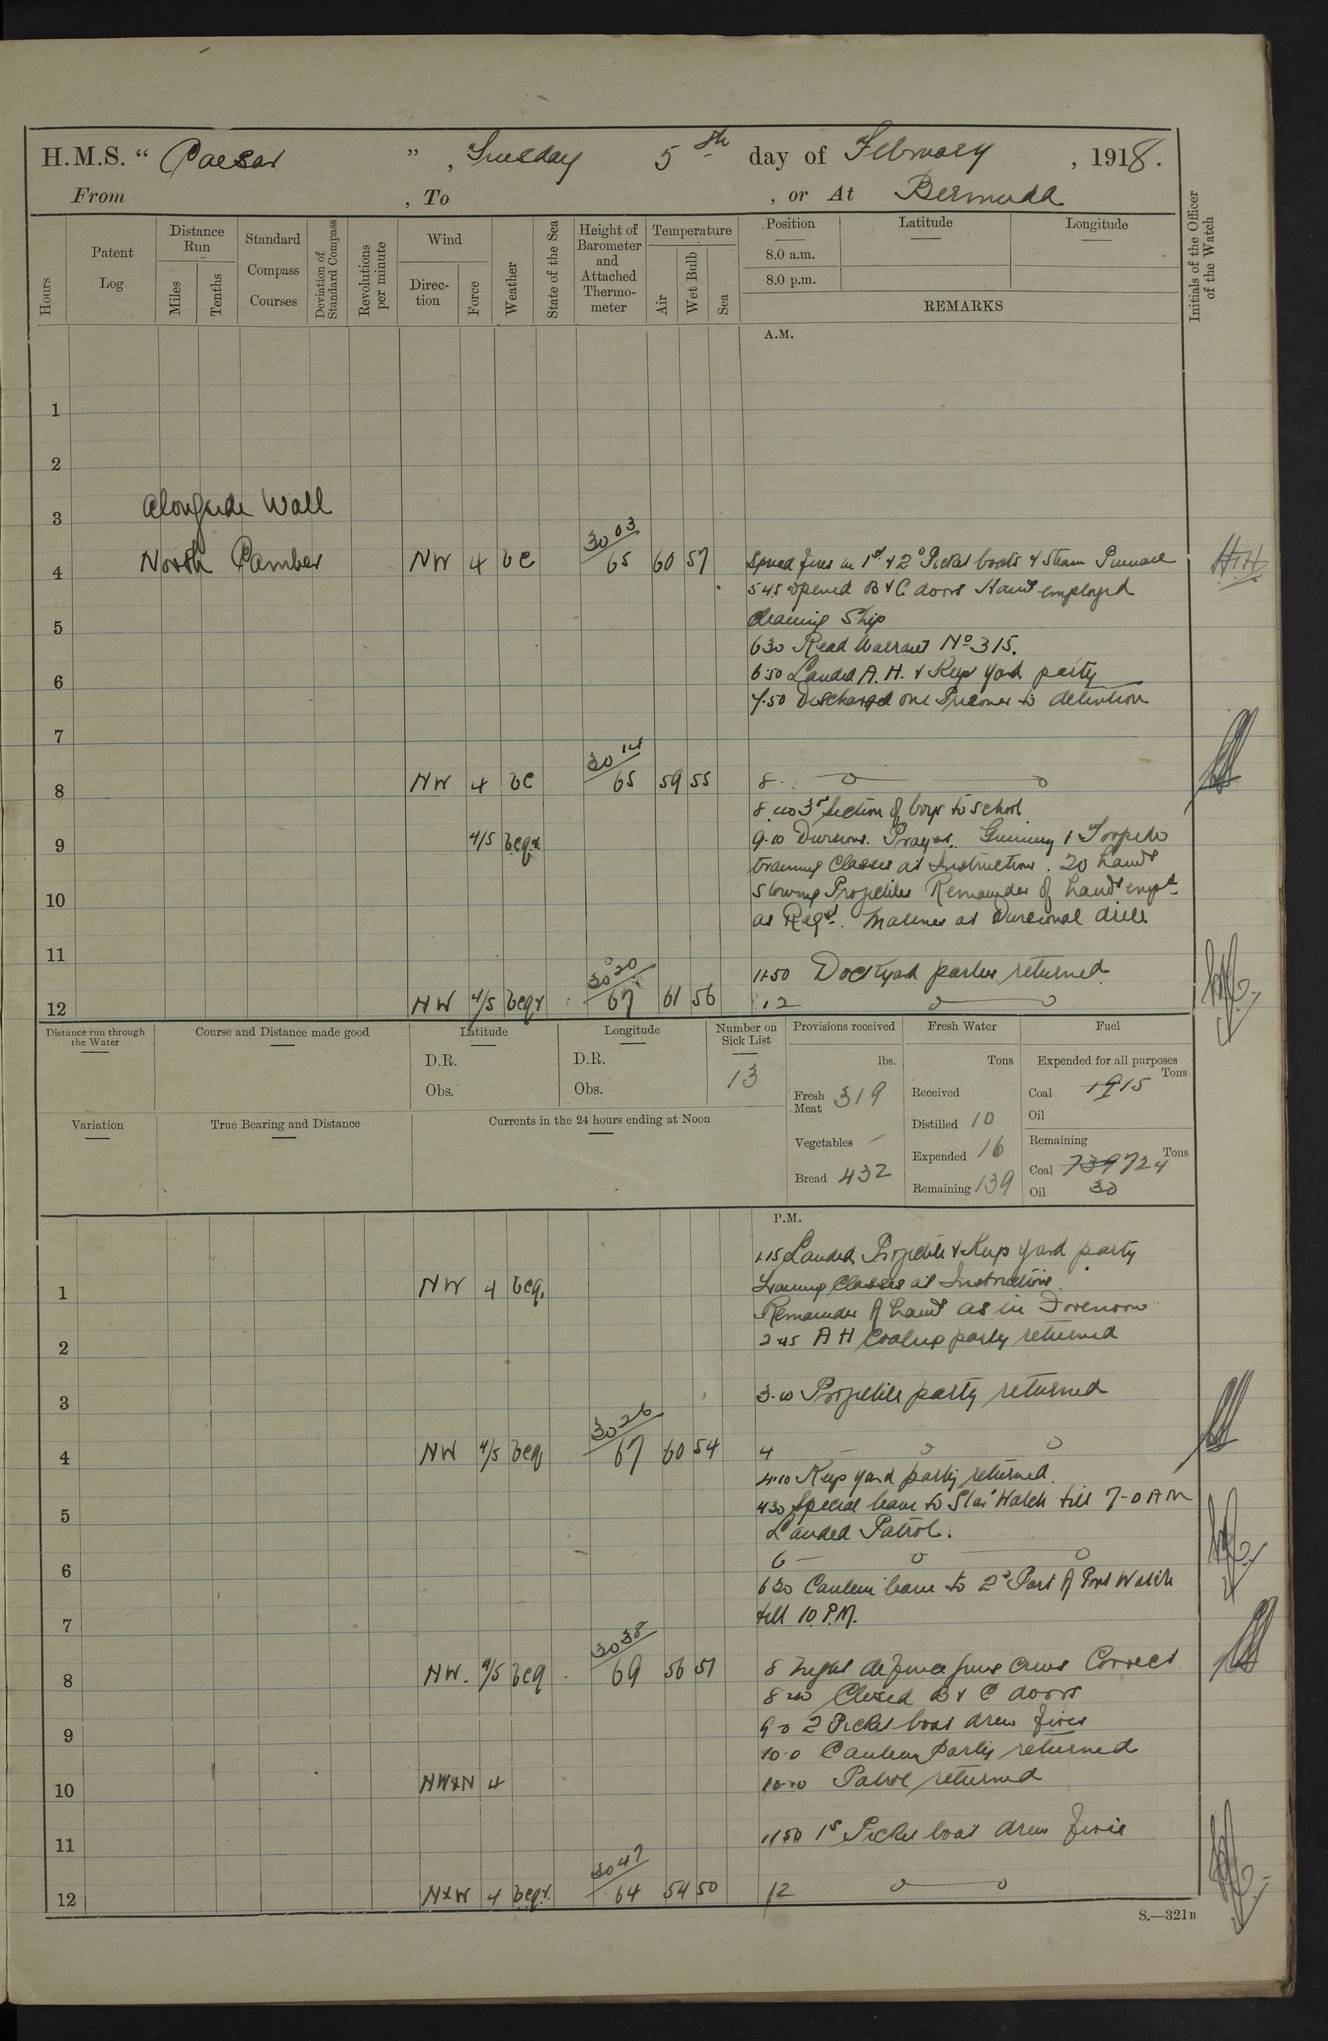 H.M.S. “ Caesar ” , Tuesday 5th day of February , 1918.
From , To , or At Bermuda
Hours
Patent Log
Distance Run
Miles
Tenths
Standard Compass Courses
Deviation of Standard Compass
Revolutions per minute
Wind
Direction
Force
Weather
State of the Sea
Height of Barometer and Attached Thermometer
Temperature
Air
Wet Bulb
Sea
Position Latitude Longitude
8.0 a.m.
8.0 p.m.
REMARKS
Initials of the Officer of the Watch
A.M.
1
2
Alongside Wall
3
North Camber
4 NW 4 bc 30 03 65 60 57 Spread fires in 1st & 2d Picket boats & Steam Pinnace
5.45 Opened B & C doors Hands employed
5 cleaning Ship
6 30 Read Warrant No 315.
6 6.50 Landed A.H. & Keep Yard party
7.50 Discharged one Prisoner to detention
7
8 NW 4 bc 30 14 65 59 55 8.
8.40 3rd Section of boys to school
9 4/5 bcqr 9.10 Divisions. Prayers. Gunnery & Torpedo
training Classes at Instruction. 20 hands
10 Stowing Projectiles Remainder of hands empd
as Reqd. Marines at Divisional drill
11
11.50 Dockyard parties returned
12 NW 4/5 bcqr 30 20 67 61 56 12
Distance run through the Water
Course and Distance made good
Latitude
D.R.
Obs.
Longitude
D.R.
Obs.
Number on Sick List
13
Provisions received
lbs.
Fresh Meat 319
Vegetables –
Bread 432
Fresh Water
Tons
Received
Distilled 10
Expended 16
Remaining 139
Fuel
Expended for all purposes
Tons
Coal 19 15
Oil
Remaining
Tons
Coal 739 724
Oil 30
Variation
True Bearing and Distance
Currents in the 24 hours ending at Noon
P.M.
1.15 Landed Projectile & Keep Yard party
1 NW 4 bcq. Training Classes at Instruction.
Remainder of hands as in Forenoon
2 2.45 A H Coaling party returned
3 3.10 Projectile party returned
4 NW 4/5 bcq 30 26 67 60 54 4
4.10 Keep yard party returned.
5 4.30 Special leave to Star Watch till 7-0 AM
Landed Patrol.
6 6
6 30 Canteen leave to 2d Part of Port Watch
7 till 10 P.M.
8 NW. 4/5 bcq 30 38 69 56 51 8 Night defence guns crews Correct
Closed B & C doors
9 9.0 2 Picket boat drew fires
10.0 Canteen Party returned
10 NWxN 4 Patrol returned
11 11 50 1st Picket boat drew fires
12 NxW 4 bcqr. 30 47 64 54 50 12
S.—321B